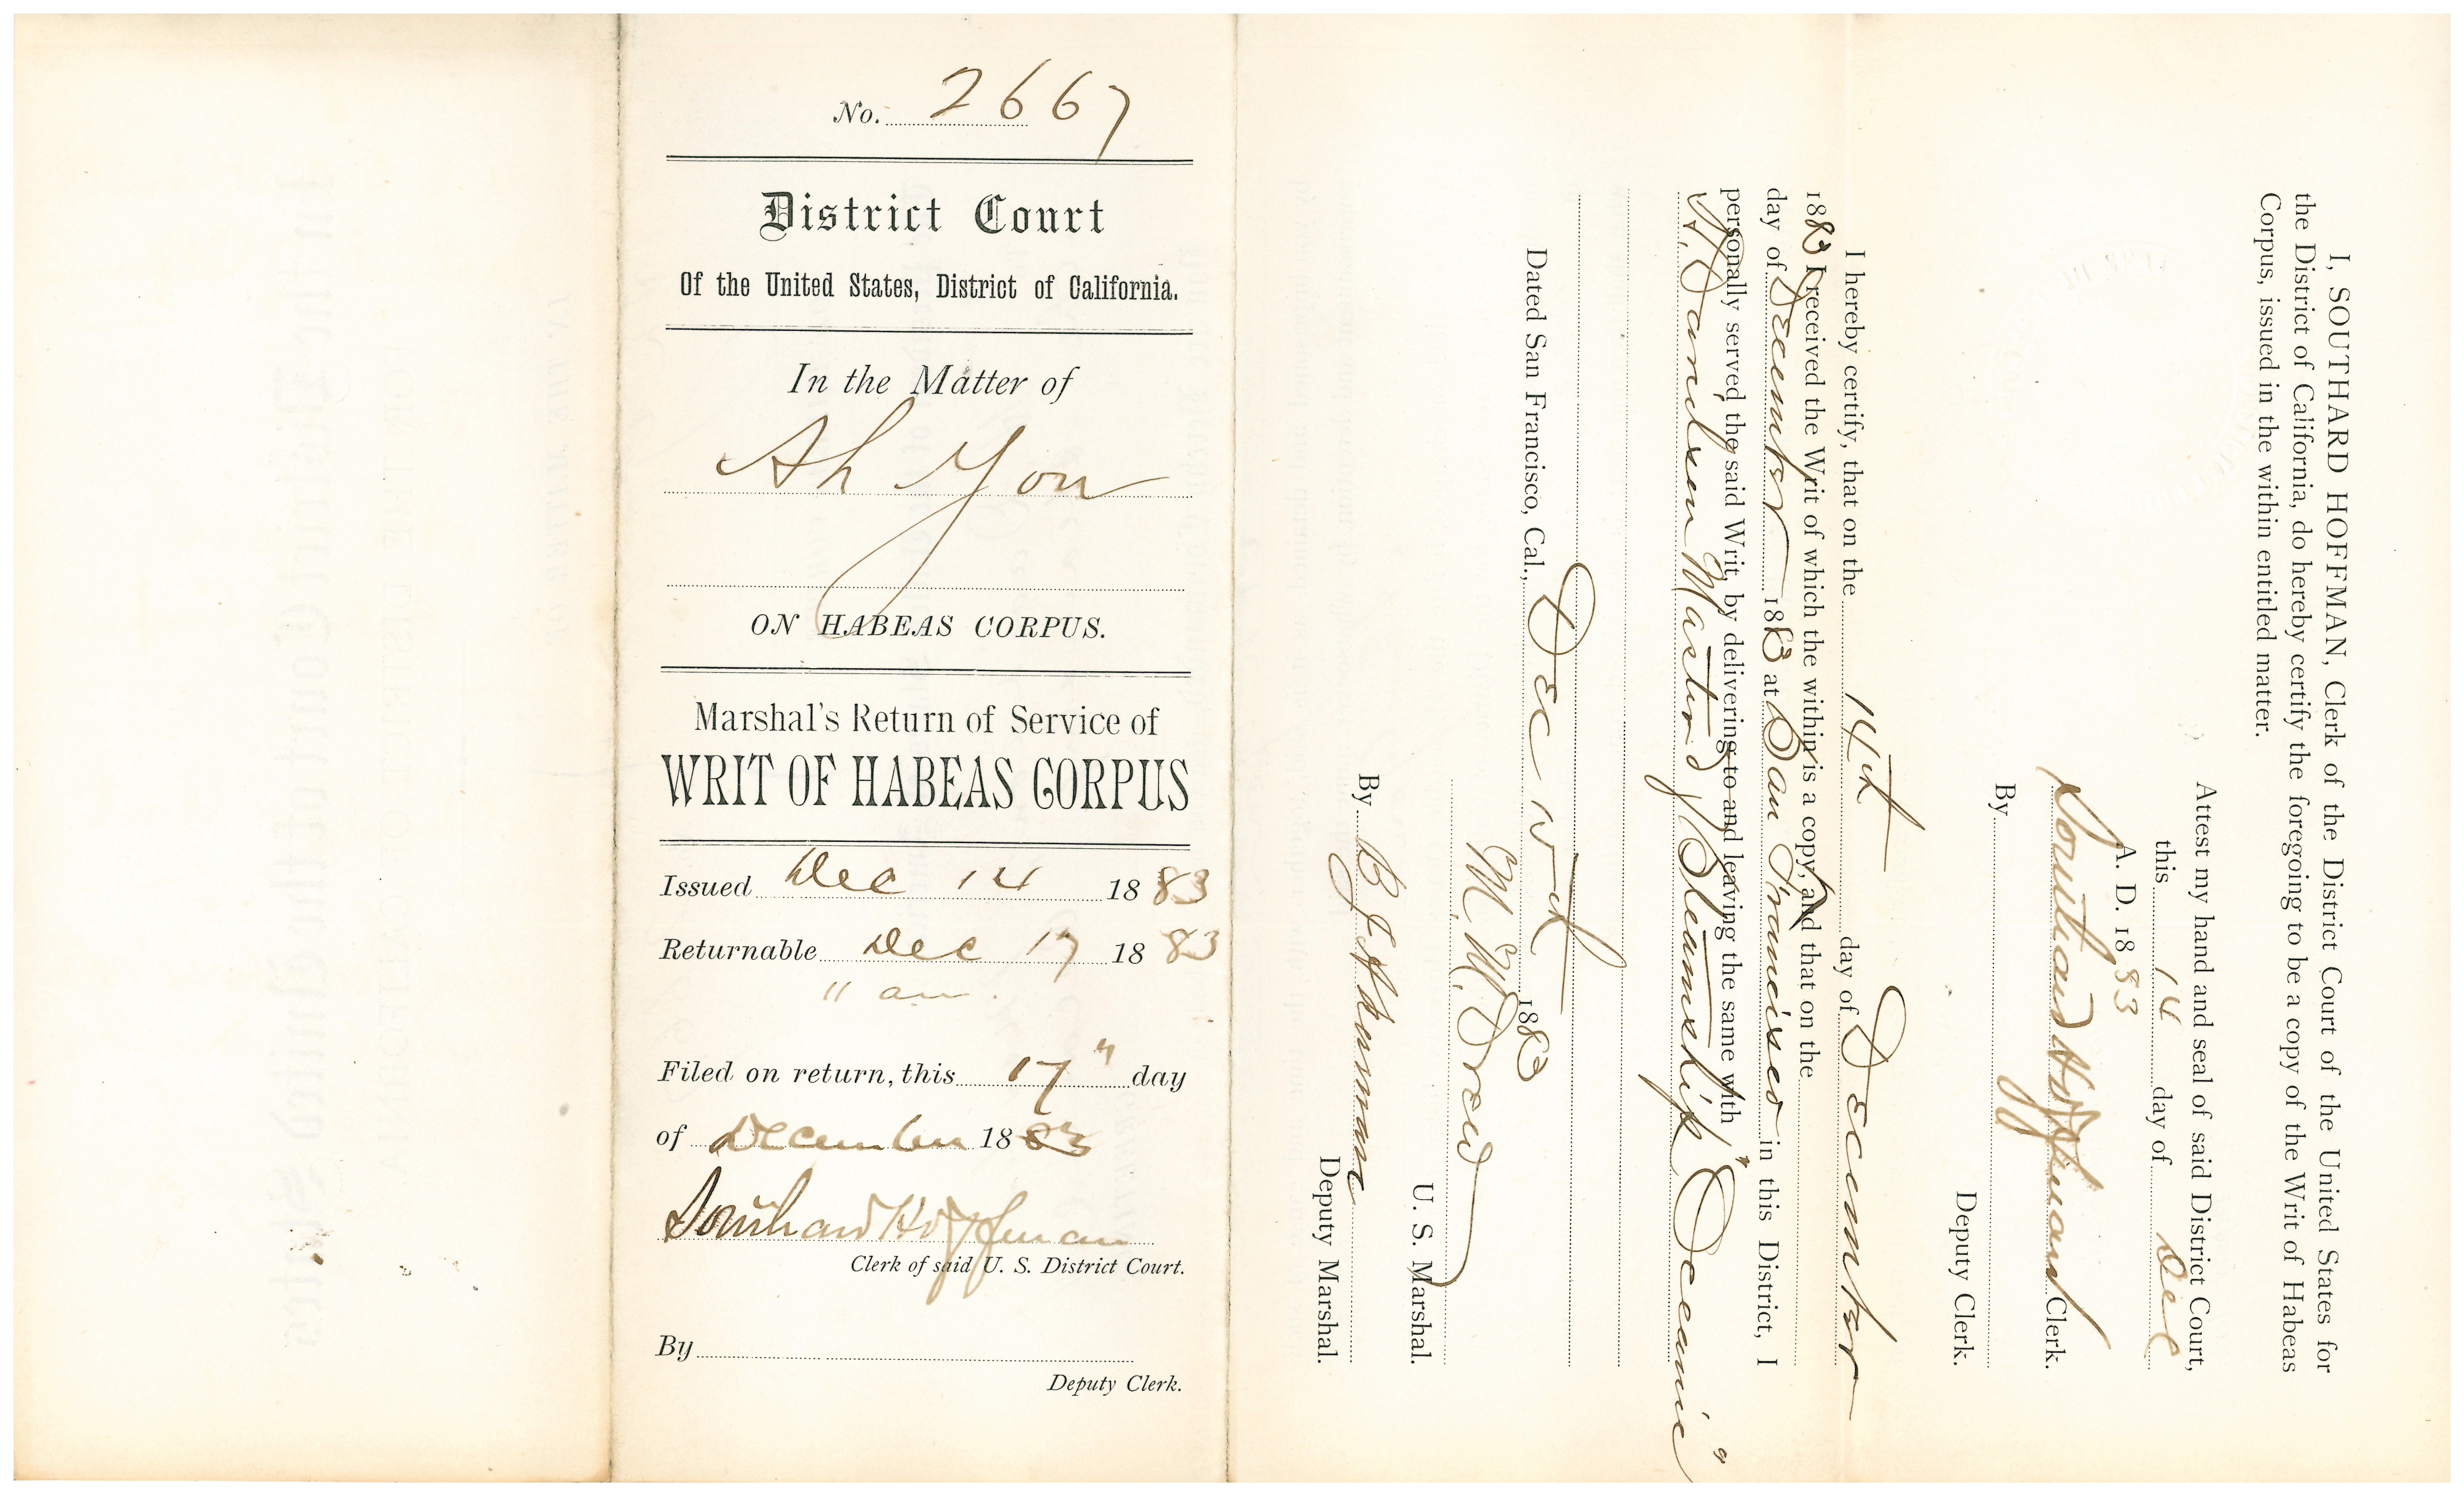 No. 2667
District Court
Of the United States, District of California.
In the Matter of
Ah You
ON HABEAS CORPUS.
Marshal's Return of Service of
WRIT OF HABEAS CORPUS
Issued Dec 14 1883
Returnable Dec 17 1883
11 am.
Filed on return, this 17" day
of December 1883
Southard Hoffman
Clerk of said U. S. District Court.
By
Deputy Clerk.
I, SOUTHARD HOFFMAN, Clerk of the District Court of the United States for
the District of California, do hereby certify the foregoing to be a copy of the Writ of Habeas
Corpus, issued in the within entitled matter.
Attest my hand and seal of said District Court,
this 14 day of Dec
A. D. 1883
Southard Hoffman Clerk.
By
Deputy Clerk.
I hereby certify, that on the 14th day of December
1883 I received the Writ of which the within is a copy, and that on the
day of December 1883 at San Francisco in this District, I
personally served the said Writ, by delivering to and leaving the same with
Master Steamship "Oceanic"
Dated San Francisco, Cal., Dec 1883
M. M. Drew
U. S. Marshal.
By
Deputy Marshal.